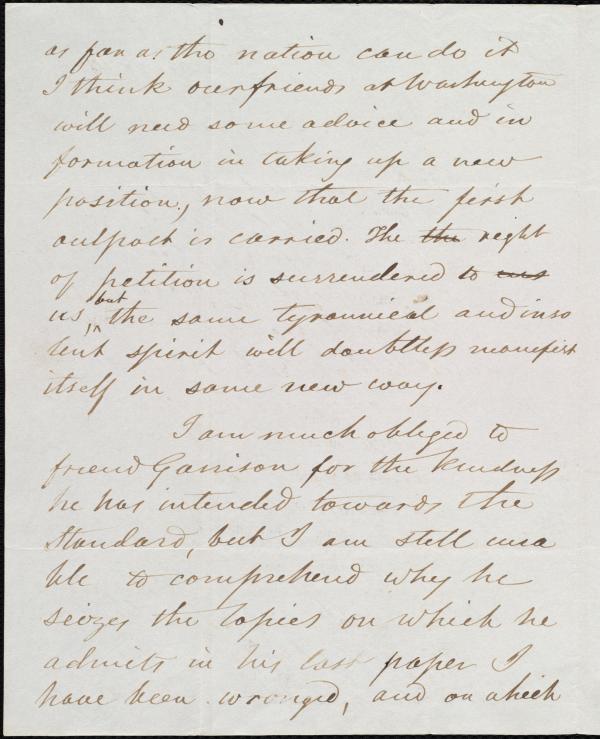 as far as the nation can do it
I think our friends at Washington
will need some advice and in
formation in taking up a new
position, now that the first
outpost is carried. The the right
of petition is surrendered to
us, but the same tyrannical and inso
lent spirit will doubtless manefist
itself in some new way.
I am much obliged to
friend Garrison for the kindness
he has intended towards the
Standard, but I am still una
ble to comprehend why he
seizes the topics on which he
admits in his last paper I
have been wronged, and on which